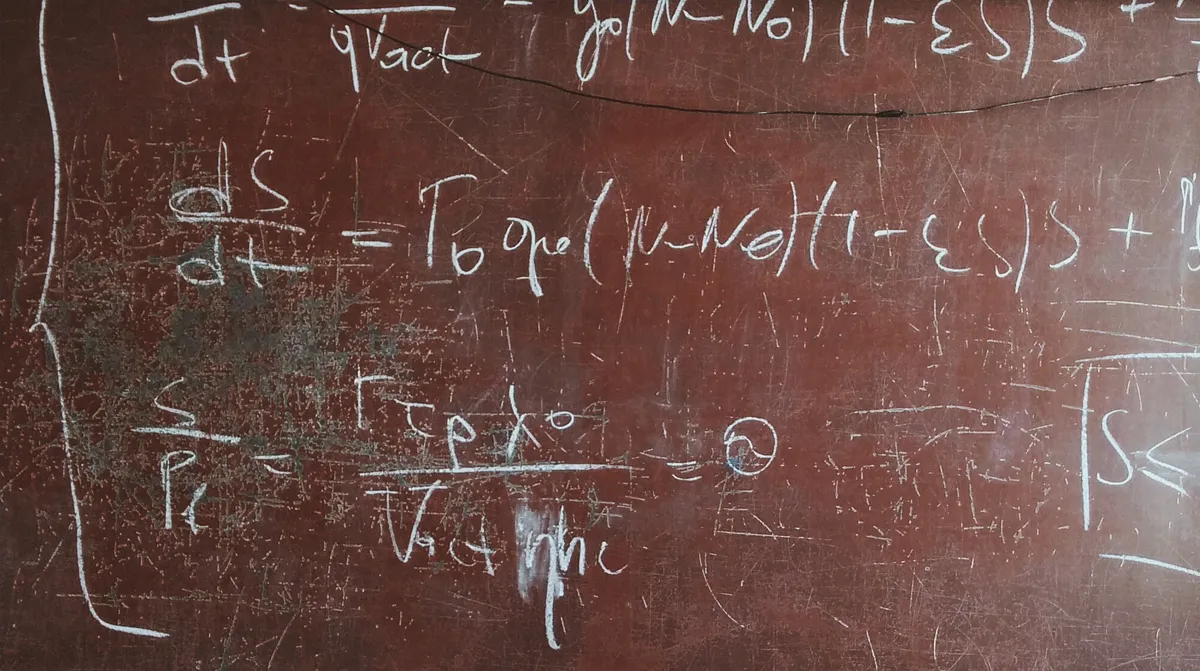 dt qVact = g₀(N-N₀)(1-εS)S +
dS/dt = Γ₀g₀(N-N₀)(1-εS)S +
S/Pf = Γτpλ₀/Vactηhc = ②
S ≤